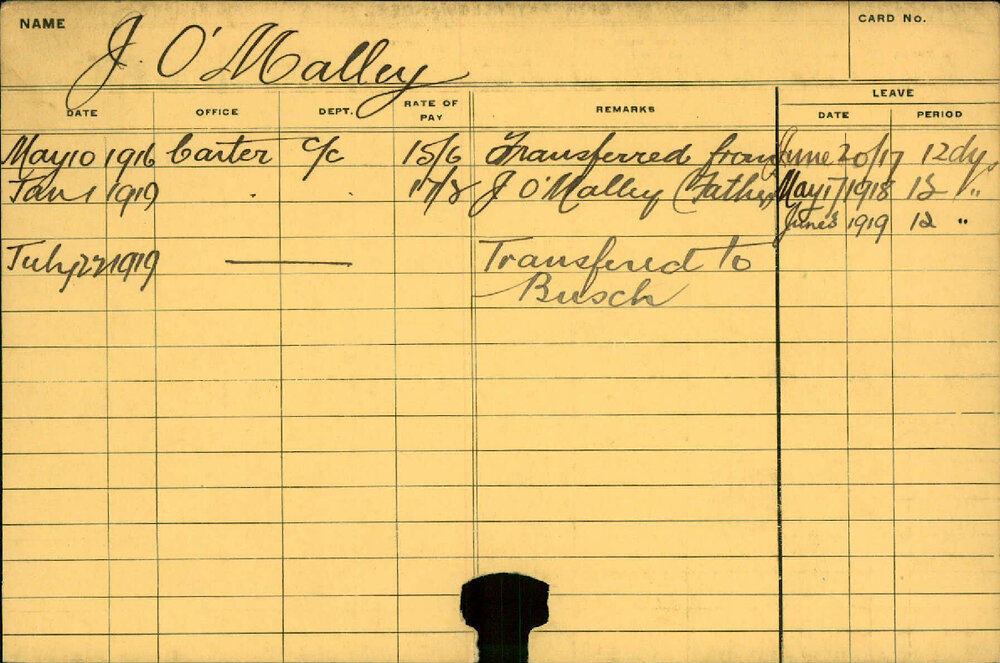 NAME
J. O'Malley
CARD No.
DATE OFFICE DEPT. RATE OF PAY REMARKS LEAVE DATE PERIOD
May 10 1916 Carter c/c 15/6 Transferred from June 20/17 12 dys
Jan 1 1919 . . 17/3 J O'Malley (Father) May 17 1918 12 "
June 3 1919 12 "
July 22 1919 —— Transferred to
Busch